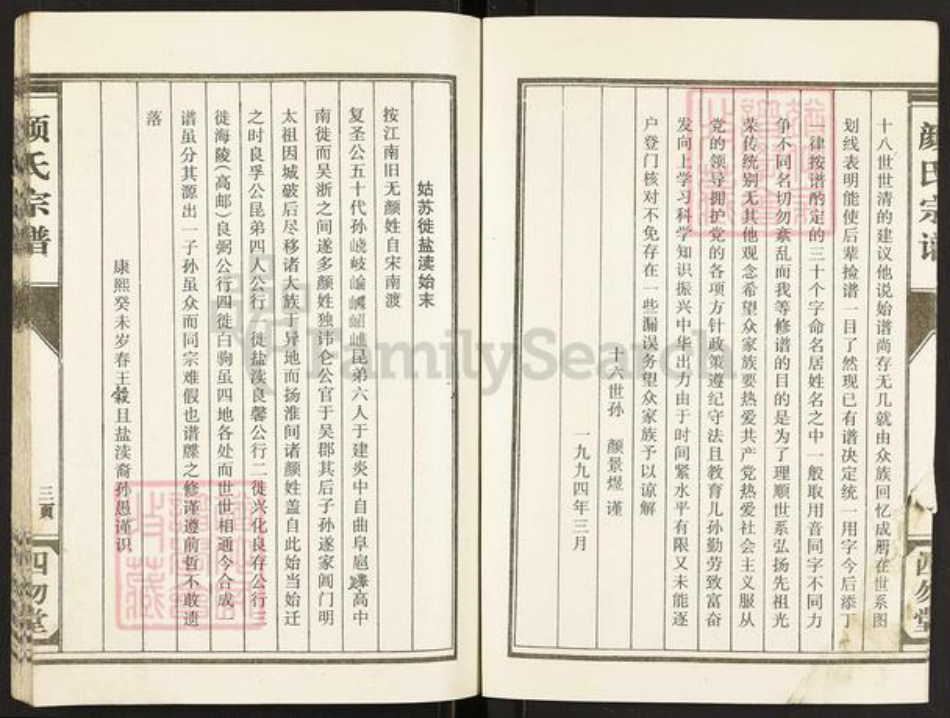 颜氏宗谱
西勿堂
十八世世清的建议他说始谱尚存无几就由众族回忆成册在世系图
划线表明能使后辈捡谱一目了然现已有谱决定统一用字今后添丁
律按谱酌定的三十个字命名居姓名之中一般取用音同字不同力
争不同名切勿紊乱而我等修谱的目的是为了理顺世系弘扬先祖光
荣传统别无其他观念希望众家族要热爱共产党热爱社会主义服从
党的领导拥护党的各项方针政策遵纪守法且教育儿孙勤劳致富奋
发向上学习科学知识振兴中华出力由于时间紧水平有限又未能逐
户登门核对不免存在一些漏误务望众家族予以谅解
十六世孙 颜景煜 谨
一九九四年三月
姑苏徙盐渎始末
按江南旧无颜姓自宋南渡
复圣公五十代孙峣岐昆弟六人于建炎中自曲阜扈高中
南徙而吴浙之间遂多颜姓独讳仑公官于吴郡其后子孙遂家阊门明
太祖因城破后尽移诸大族于异地而扬淮间诸颜姓盖自此始当始迁
之时良孚公昆弟四人公行 徙盐渎良馨公行二徙兴化良存公行三
徙海陵(高邮)良弼公行四徙白驹虽四地各处而世世相通今合成一
谱虽分其源出一子孙虽众而同宗难假也谱牒之修谨遵前哲不敢遗
落
康熙癸未岁春王穀且盐渎裔孙愚谨识
颜氏宗谱
三页
四勿堂
FamilySearch